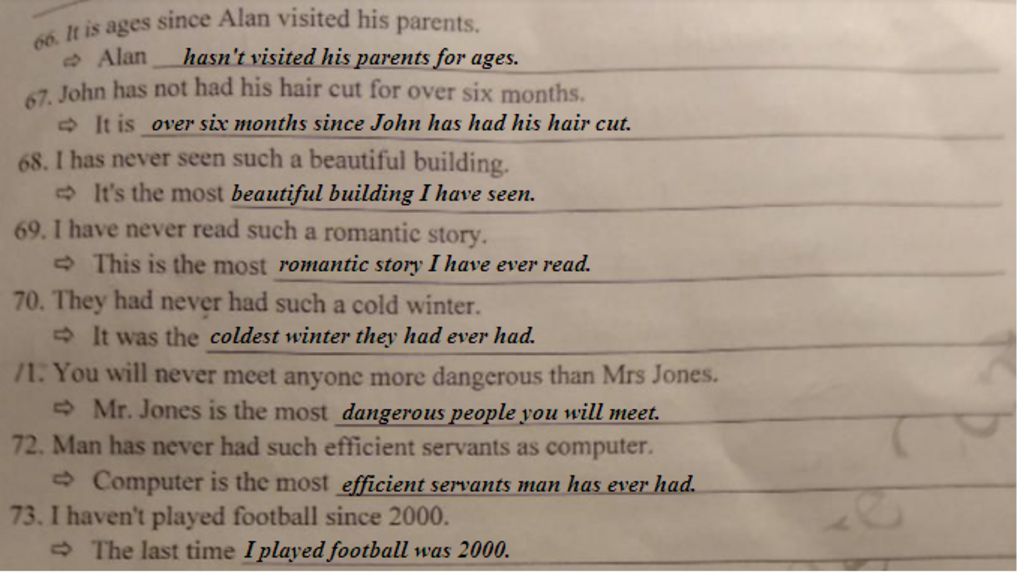 66. It is ages since Alan visited his parents.
⇨ Alan hasn't visited his parents for ages.
67. John has not had his hair cut for over six months.
⇨ It is over six months since John has had his hair cut.
68. I has never seen such a beautiful building.
⇨ It's the most beautiful building I have seen.
69. I have never read such a romantic story.
⇨ This is the most romantic story I have ever read.
70. They had never had such a cold winter.
⇨ It was the coldest winter they had ever had.
71. You will never meet anyone more dangerous than Mrs Jones.
⇨ Mr. Jones is the most dangerous people you will meet.
72. Man has never had such efficient servants as computer.
⇨ Computer is the most efficient servants man has ever had.
73. I haven't played football since 2000.
⇨ The last time I played football was 2000.